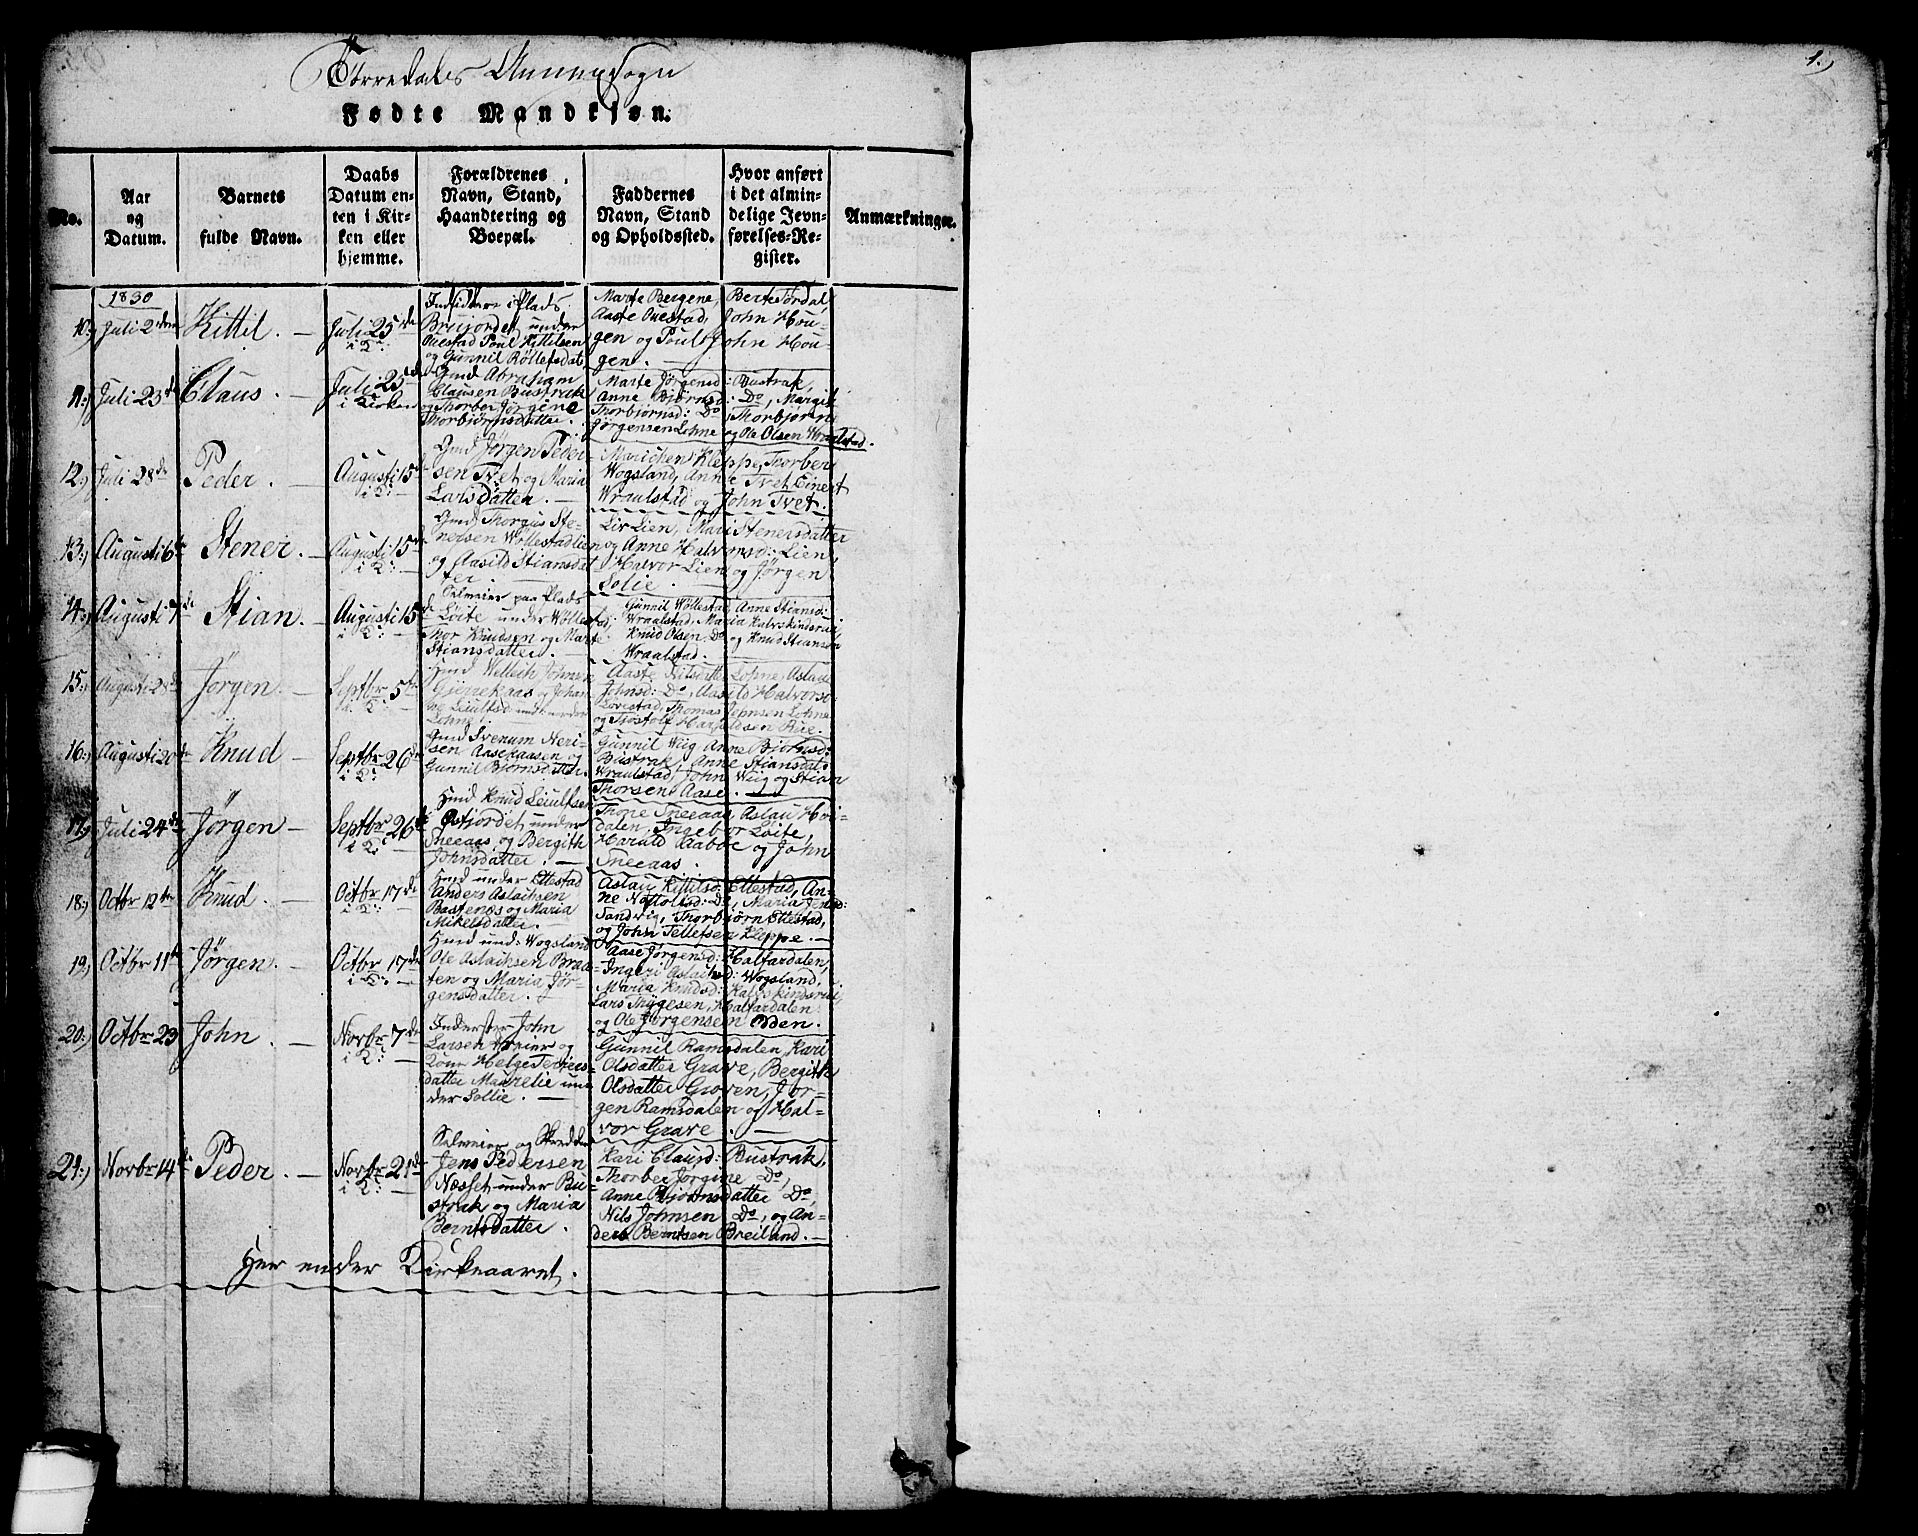 Tørredals Annexsogn
Fødte Mandkiøn.
No.
Aar
og
Datum.
Barnets
fulde Navn.
Daabs
Datum en-
ten i Kir-
ken eller
hjemme.
Forældrenes
Navn, Stand,
Haandtering og
Boepæl.
Faddernes
Navn, Stand
og Opholdssted.
Hvor anført
i det almin-
delige Jevn-
førelses-Re-
gister.
Anmærkninger.
1830
10.) Juli 2den
Kittil. —
Juli 25de
i K: —
i Plads
Breijordet under
Ouestad Poul Kittilsen
og Gunnil Røllefsdat
Marte Bergene, Berte Tørdal,
Aaste Ouestad, John Hou-
gen og Poul John Hou-
gen. —
11.) Juli 23de
Claus. —
Juli 25de
i Kirken
Gmd Abraham
Clausen Bustrak
og Thorber Jørgine
Thorbjørnsdatter. —
Marte Jørgensd: Bustrak,
Anne Bjørnsd: Do, Margit
Thorbjørnsd: Do, Thorbjørn
Jørgensen Lohne og Ole Olsen Wraalstad.
12.) Juli 28de
Peder. —
Augusti 15de
i K: —
Gmd Jørgen Peder-
sen Tvet og Maria
Larsdatter. —
Marichen Kleppe, Thorber
Wogsland, Anne Tvet, Einert
Wraalstad og John Tvet.
13.) Augusti 6te
Stener. —
Augusti 15de
i K: —
Gmd Thorgus Ste-
nersen Wøllestadlien
og Aasild Stiansdat-
ter. —
Liv Lien, Mari Stenersdatter
og Anne Halvorsd: Lien,
Halvor Lien og Jørgen
Solie. —
14.) Augusti 7de
Stian. —
Augusti 15de
i K: —
Selveier paa Plads
Løite under Wølles
Knudsen og Marte
Stiansdatter. —
Gunnil Wøllestad, Anne Stiansd:
Wraalstad, Maria Kalvskindsrui,
Knud Olsen Do og Knud Stiansen
Wraalstad.
15.) Augusti 28de
Jørgen. —
Septbr 5te
i K: —
Johnsen
Gjerrekaas og Johan
under
Lohne.
Aaste Nilsdatter Lohne, Aslaug
Johnsd: Do, Aasild Halvorsd:
Lovestad, Thomas Johnsen Lohne
og Tjøstolf Harfeldsen Rue.
16.) Augusti 20de
Knud —
Septbr 26de
i K: —
Gmd Svenum Neri-
sen Aasekaasen og
Gunnil Bjørnsdatter.
Gunnil Wiig, Anne Bjørnsd:
Bustrak, Anne Stiansdat:
Wraalstad, John Wiig og Stian
Thorsen Aase. —
17.) Juli 24de
Jørgen —
Septbr 26de
i K: —
Hmd Knud Leiulfsen
Østjordet under
Sneeaas og Bergith
Johnsdatter. —
Thone Sneeaas, Aslau Høi-
dalen, Ingebor Løite,
Harald Raaboe og John
Sneeaas. —
18.) Octbr 12te
Knud. —
Octbr 17de
i K: —
Hmd under Ettestad
Anders Aslaksen
Bastenæs og Maria
Mikelsdatter. —
Aslau Kittilsd: Ettestad, An-
ne Notolfsd: Do, Maria Jensd:
Sandvig, Thorbjørn Ettestad,
og John Tellefsen Kleppe. —
19.) Octbr 11te
Jørgen. —
Octbr 17de
i K: —
Hmd und: Wogsland
Ole Aslaksen Braa-
ten og Maria Jør-
gensdatter. —
Aase Jørgensd: Halfardalen,
Ingeri Aslaksd: Wogsland,
Maria Knudsd: Kalvskindsrui,
Lars Thygesen, Halfardalen
og Ole Jørgensen Odden. —
20.) Octbr 23
John. —
Novbr 7de
i K: —
Inderster John
Larsen Wraier og
Kone Helge Terjes-
datter Maurelie un-
der Sollie. —
Gunnil Ramsdalen, Kari
Olsdatter Grave, Bergith
Olsdatter Groven, Jør-
gen Ramsdalen og Hal-
vor Grave. —
21.) Novbr 14de
Peder. —
Novbr 21de
i K: —
Selveier og Skredder
Jens Pedersen
Næsset under Bu-
strak og Maria
Berntsdatter.
Kari Clausd: Bustrak,
Thorber Jørgine Do,
Anne Bjørnsdatter Do,
Nils Johnsen Do, og An-
ders Berntsen Breiland. —
Her ender Kirkeaaret.
1.)